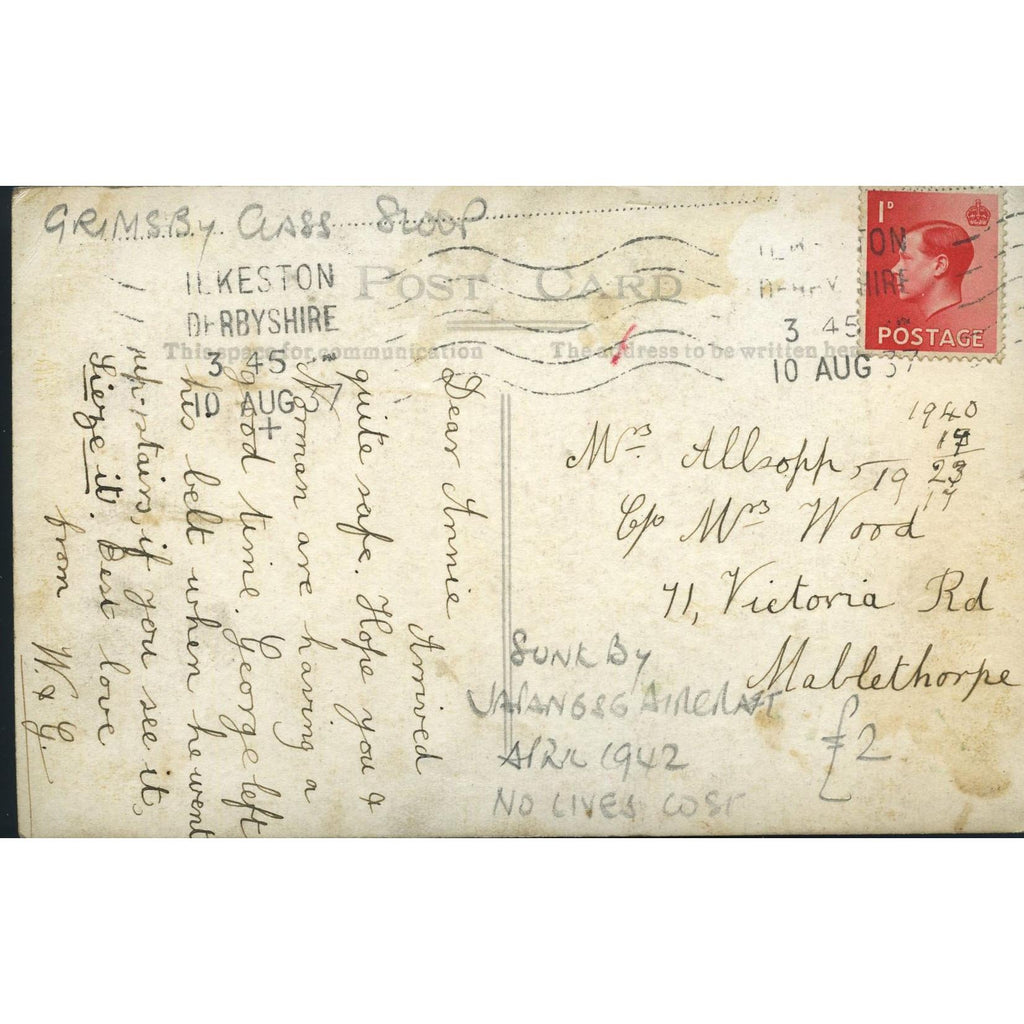 GRIMSBY CLASS SLOOP
POST CARD
This space for communication
The address to be written here
ILKESTON
DERBYSHIRE
3 45 PM
10 AUG 37
ILKESTON
DERBYSHIRE
3 45
10 AUG 37
1D
POSTAGE
Dear Annie
Arrived
quite safe. Hope you &
Norman are having a
good time. George left
his belt when he went
up-stairs, if you see it,
Sieze it. Best love
from
W. & G.
Mrs Allsopp,
C/o Mrs Wood
71, Victoria Rd
Mablethorpe
1940
17
19 23
17
SUNK BY
JAPANESE AIRCRAFT
APRIL 1942
NO LIVES LOST
£2